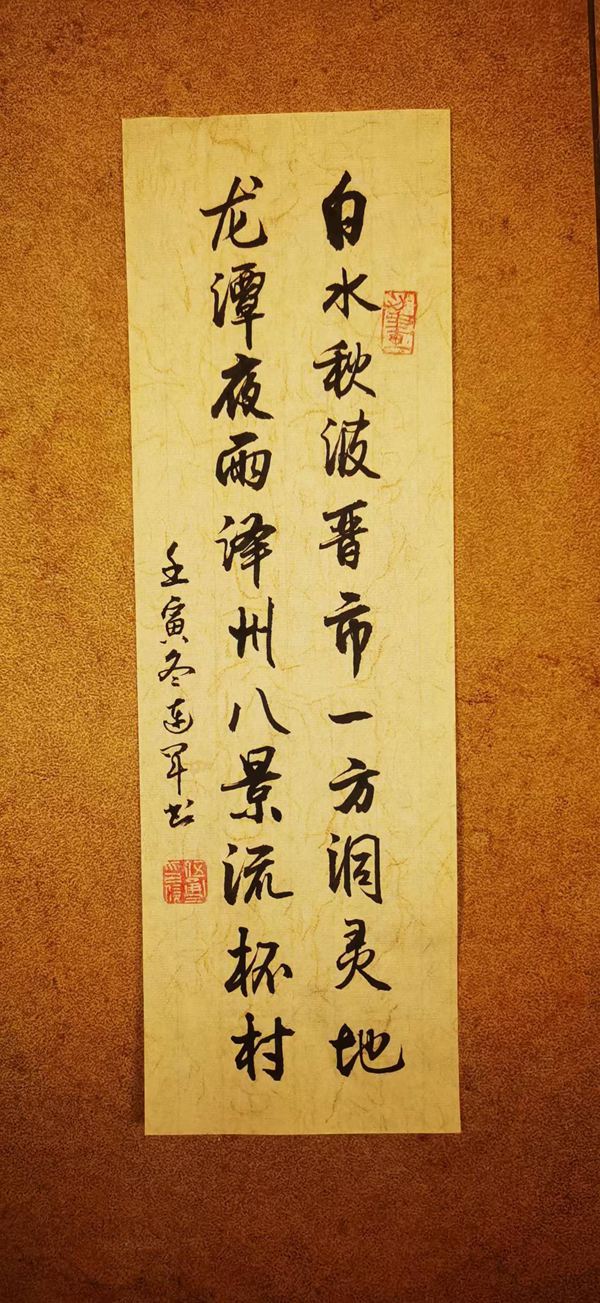 白水秋波晋市一方洞灵地
龙潭夜雨泽州八景流杯村
壬寅冬连军书